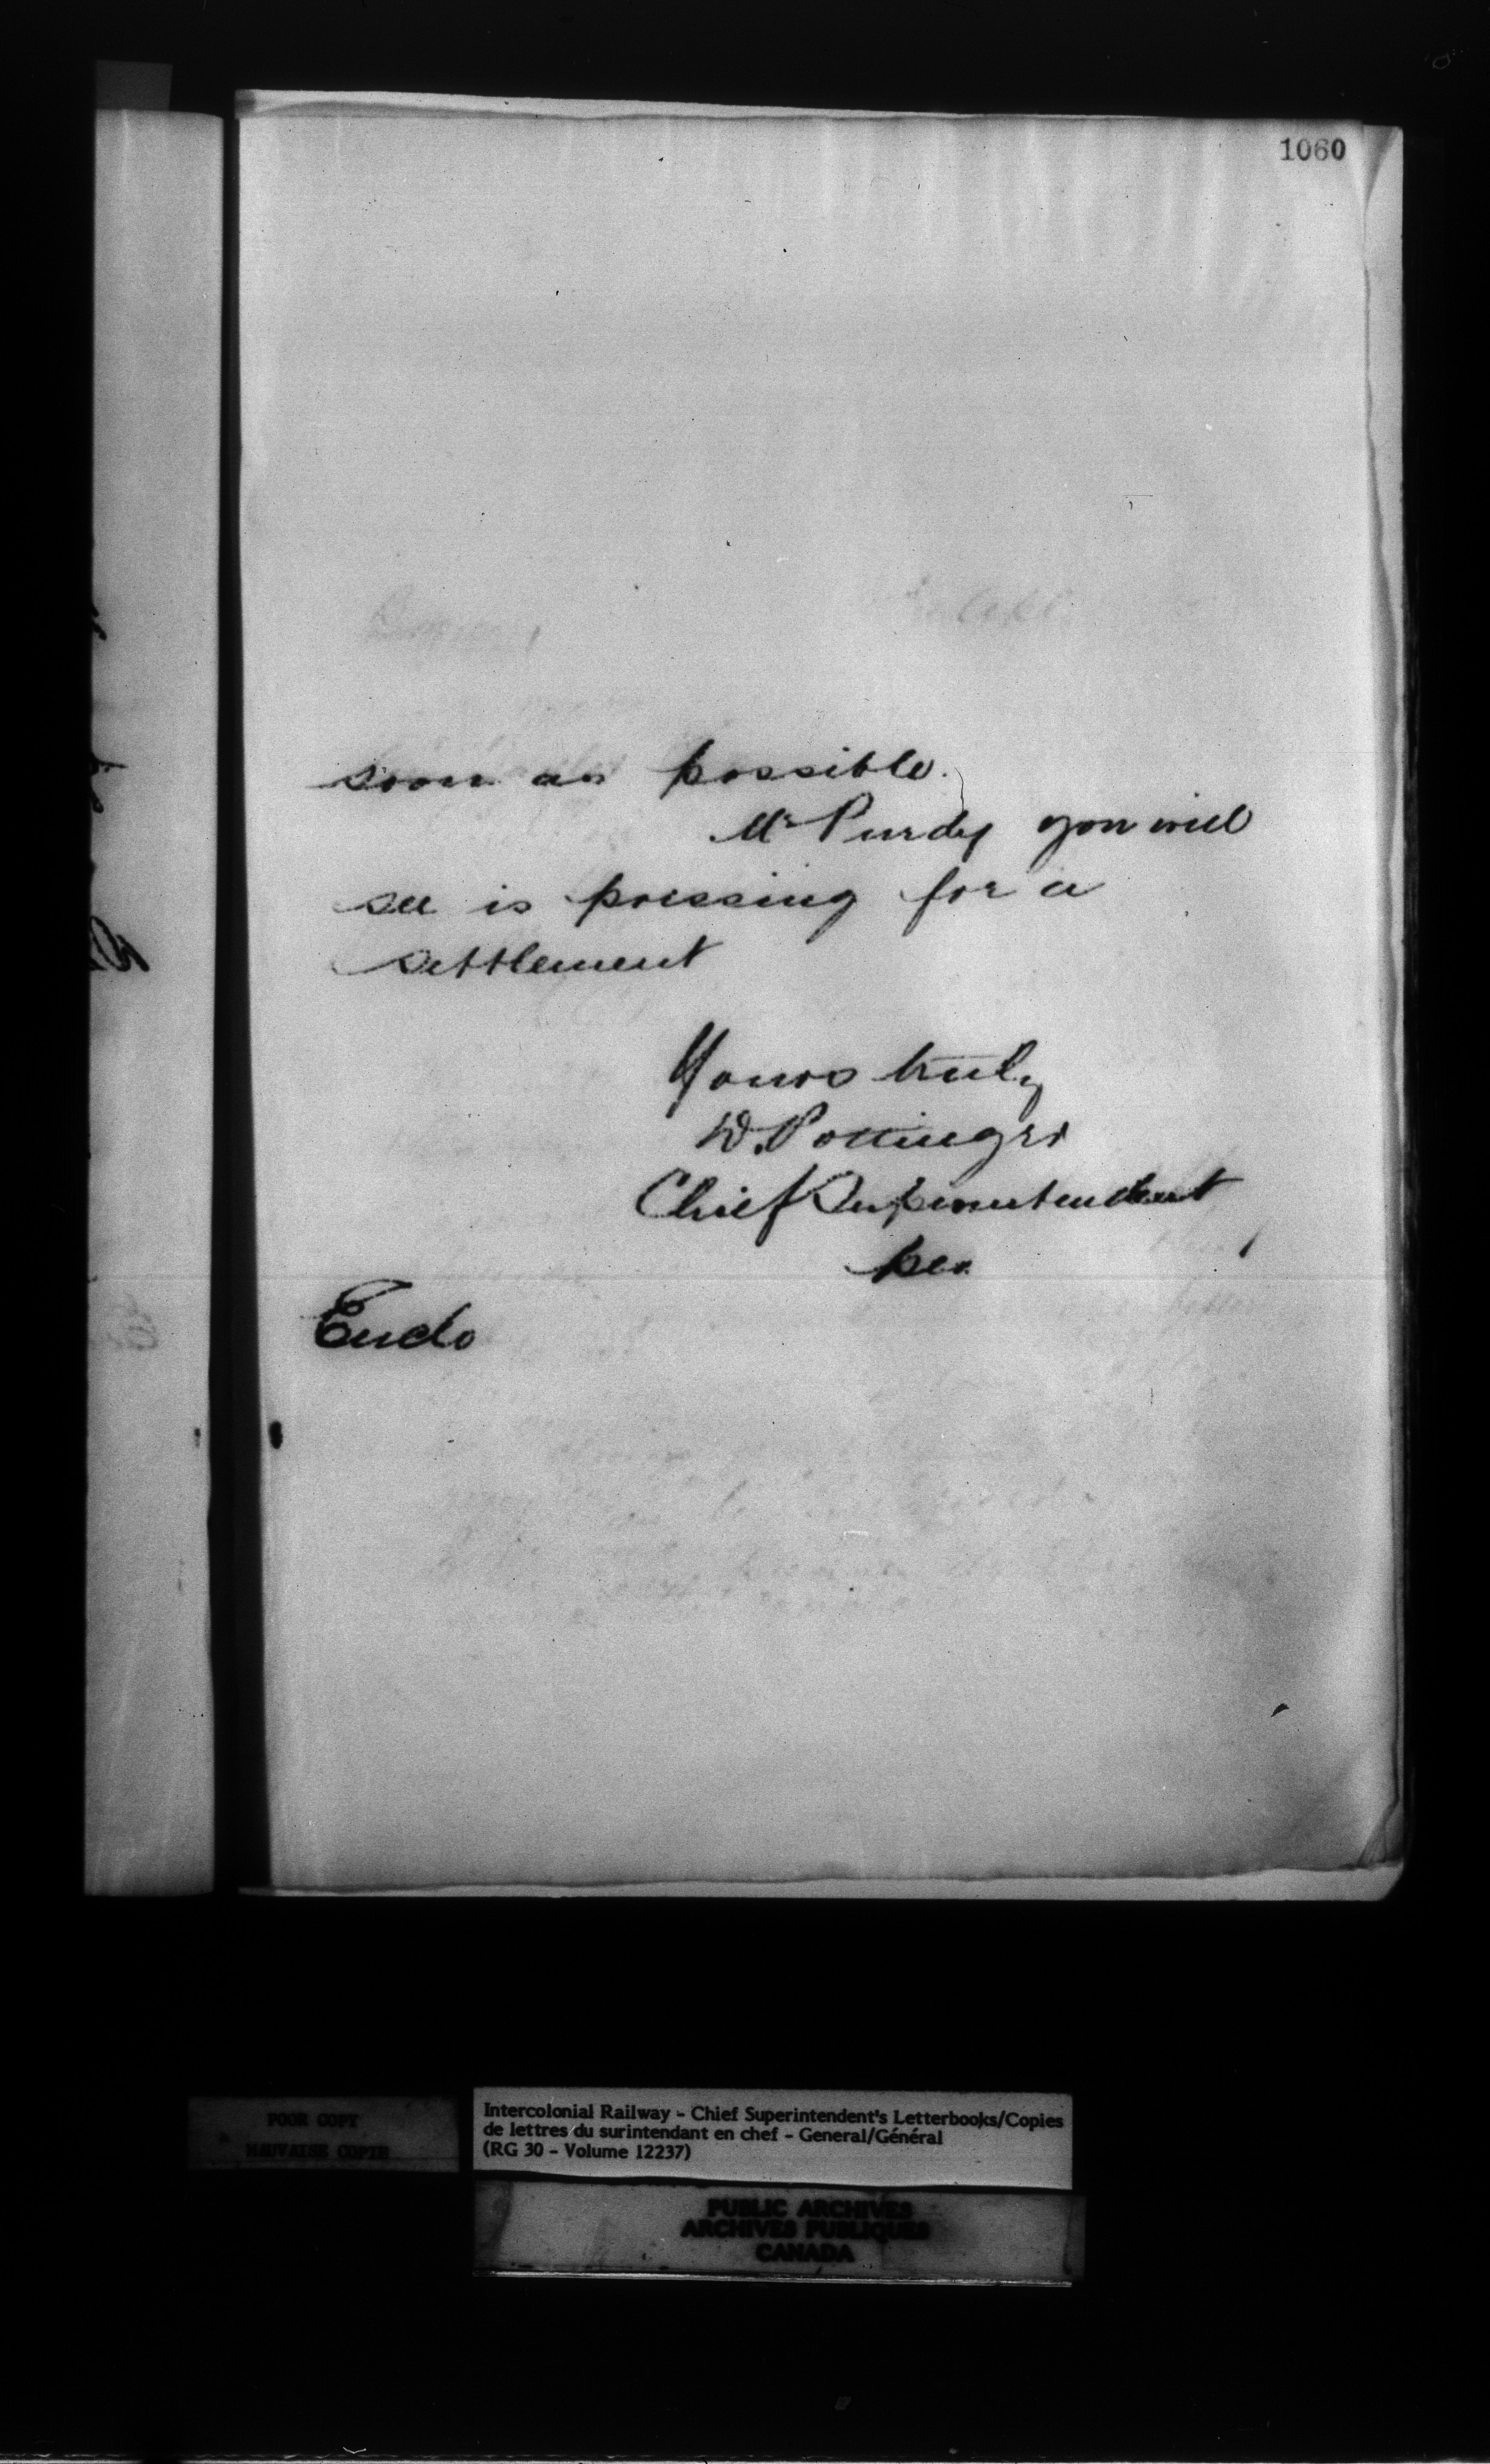 1060
soon as possible.
Mr Purdy you will
see is pressing for a
settlement
Yours truly
D. Pottinger
Chief Superintendent
per
Enclo
POOR COPY
MAUVAISE COPIE
Intercolonial Railway - Chief Superintendent's Letterbooks/Copies
de lettres du surintendant en chef - General/Général
(RG 30 - Volume 12237)
PUBLIC ARCHIVES
ARCHIVES PUBLIQUES
CANADA